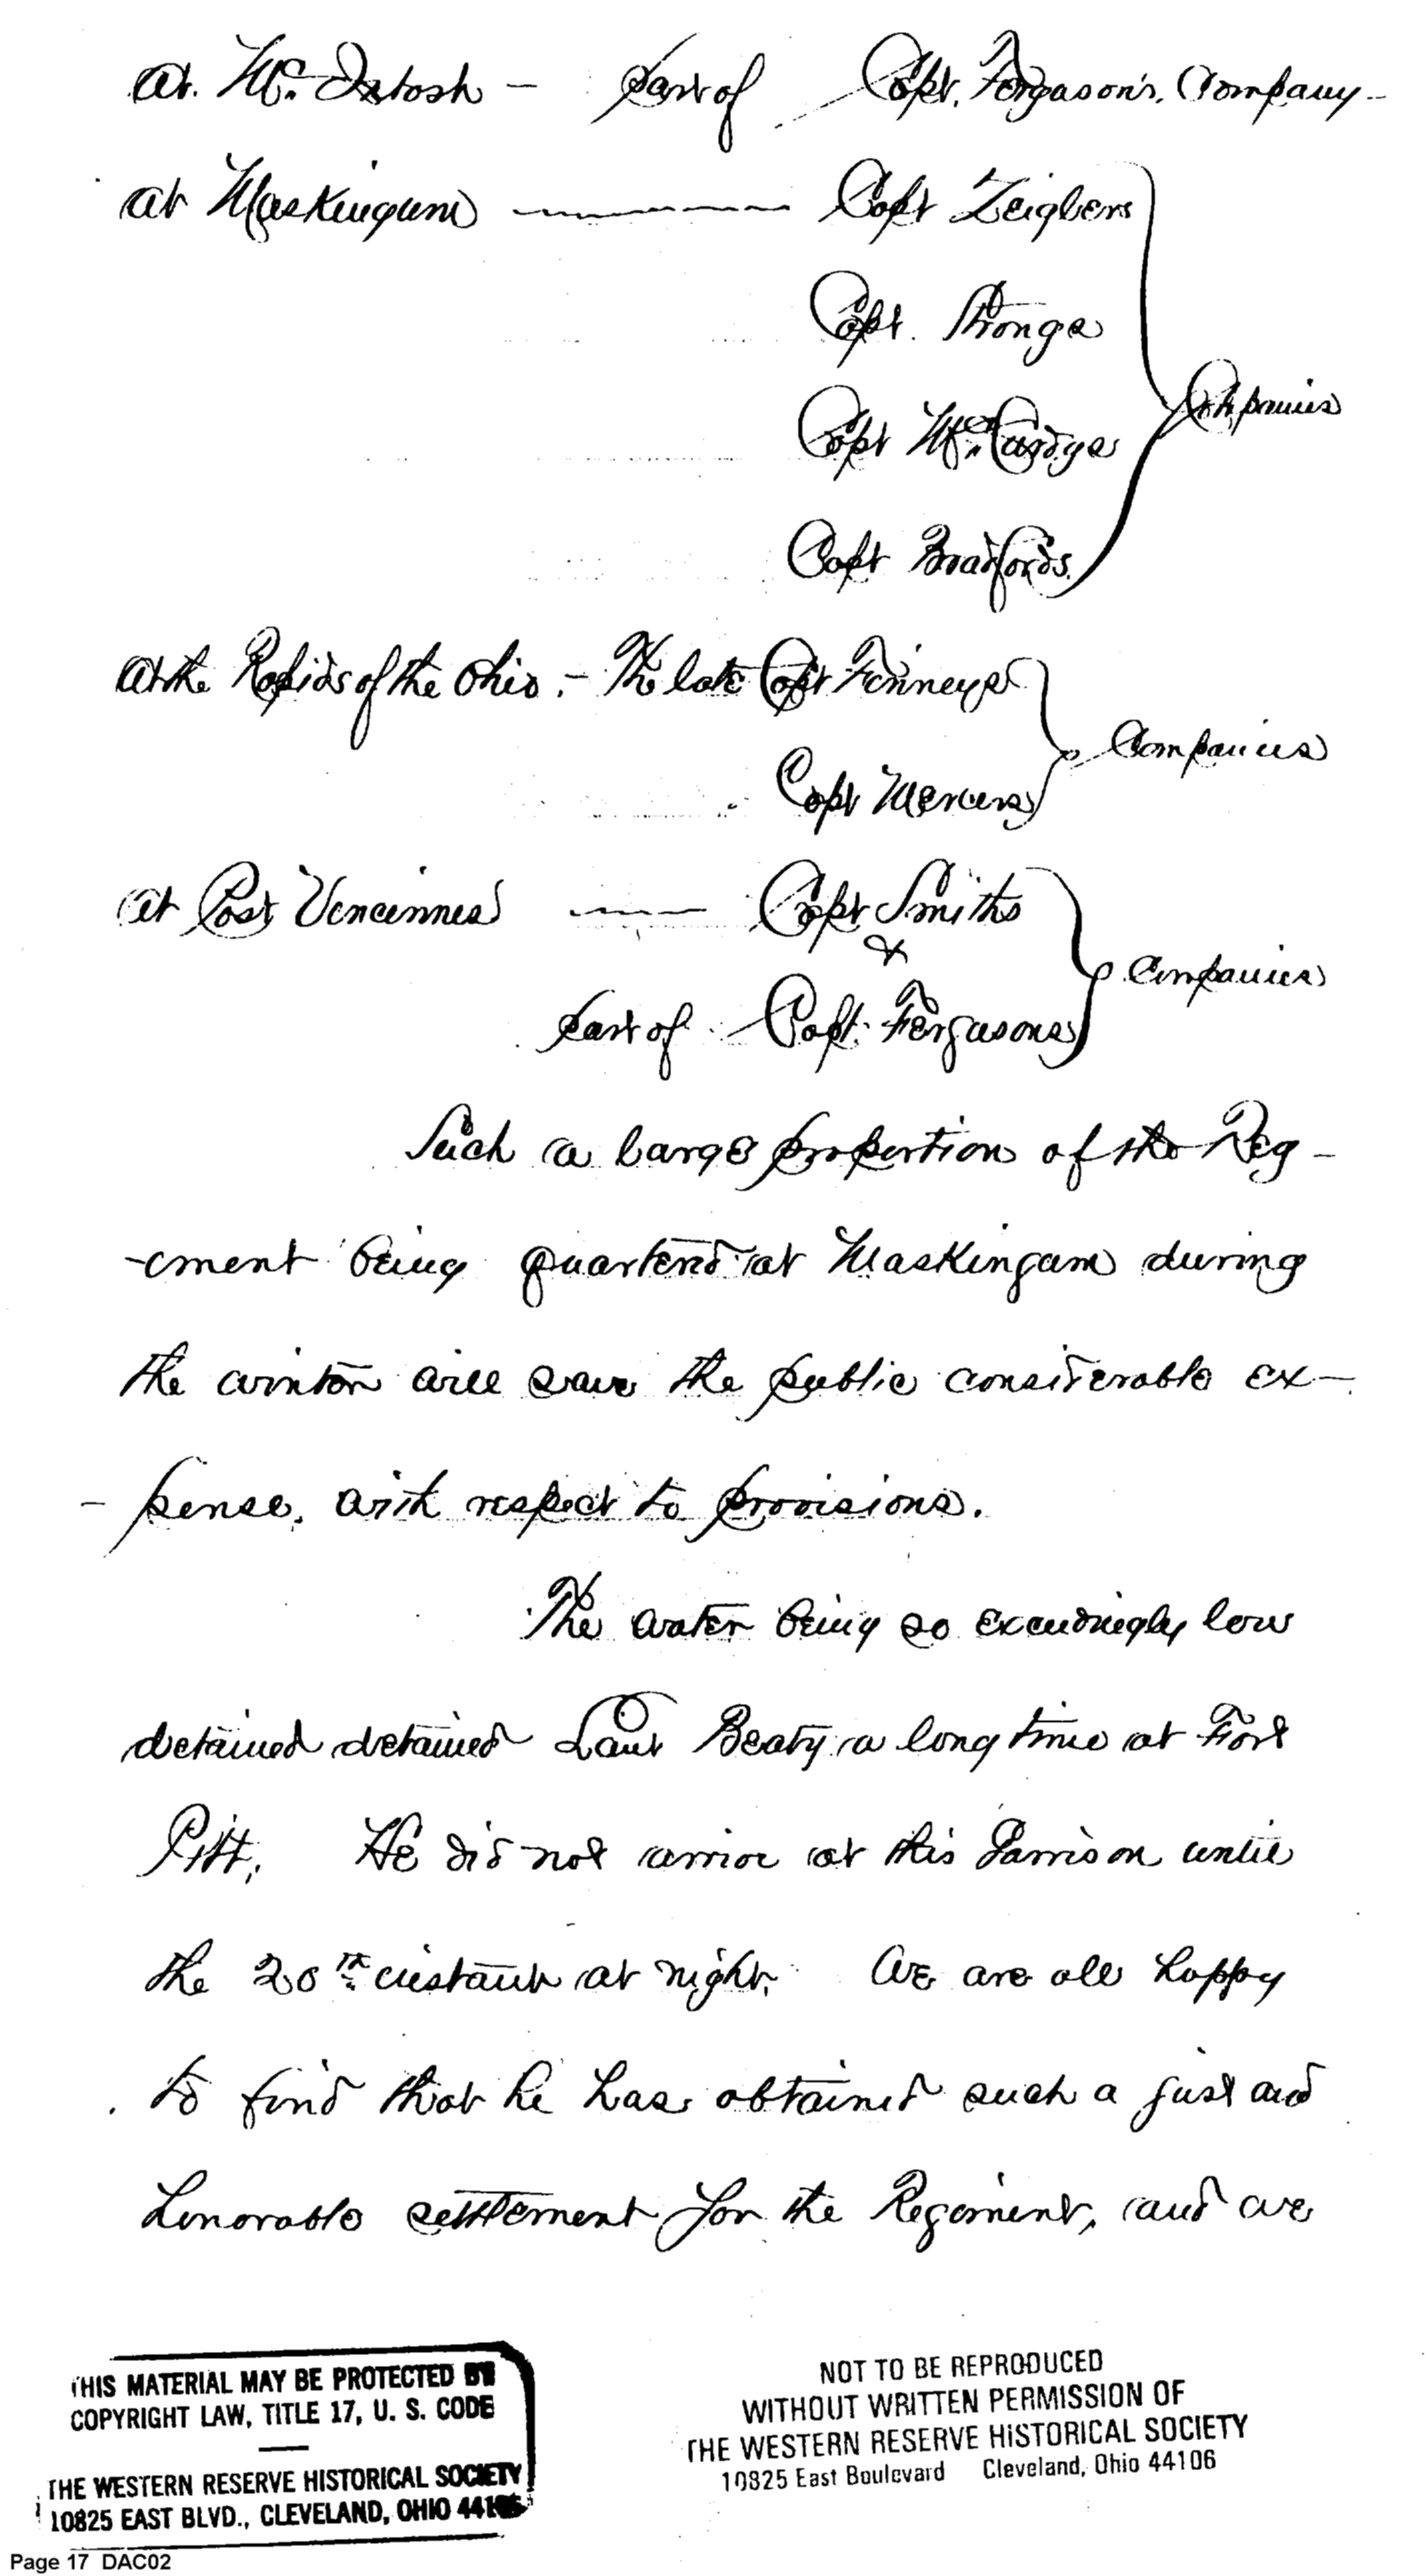 at. Mc. Intosh - part of Capt. Fergason's. Company -
at Muskingum ——— Capt Zeiglers
Capt. Strongs
Capt McCurdys Companies
Capt Bradfords.
at the Rapids of the Ohio. - The late Capt Finneys
Companies
Capt Mercers
at Post Vencennes —— Capt Smiths
&
Companies
part of Capt. Fergasons
Such a large proportion of the Reg -
-ement being quartered at Muskingum during
the winter will save the public considerable ex -
- pense, with respect to provisions.
The water being so exceedingly low
detained detained Laut Beaty a long time at Fort
Pitt. He did not arrive at this Garrison until
the 20th instant at night. We are all happy
to find that he has obtained such a just and
honorable settlement for the Regiment, and we
THIS MATERIAL MAY BE PROTECTED BY
COPYRIGHT LAW, TITLE 17, U. S. CODE
THE WESTERN RESERVE HISTORICAL SOCIETY
10825 EAST BLVD., CLEVELAND, OHIO 44106
NOT TO BE REPRODUCED
WITHOUT WRITTEN PERMISSION OF
THE WESTERN RESERVE HISTORICAL SOCIETY
10825 East Boulevard Cleveland, Ohio 44106
Page 17 DAC02